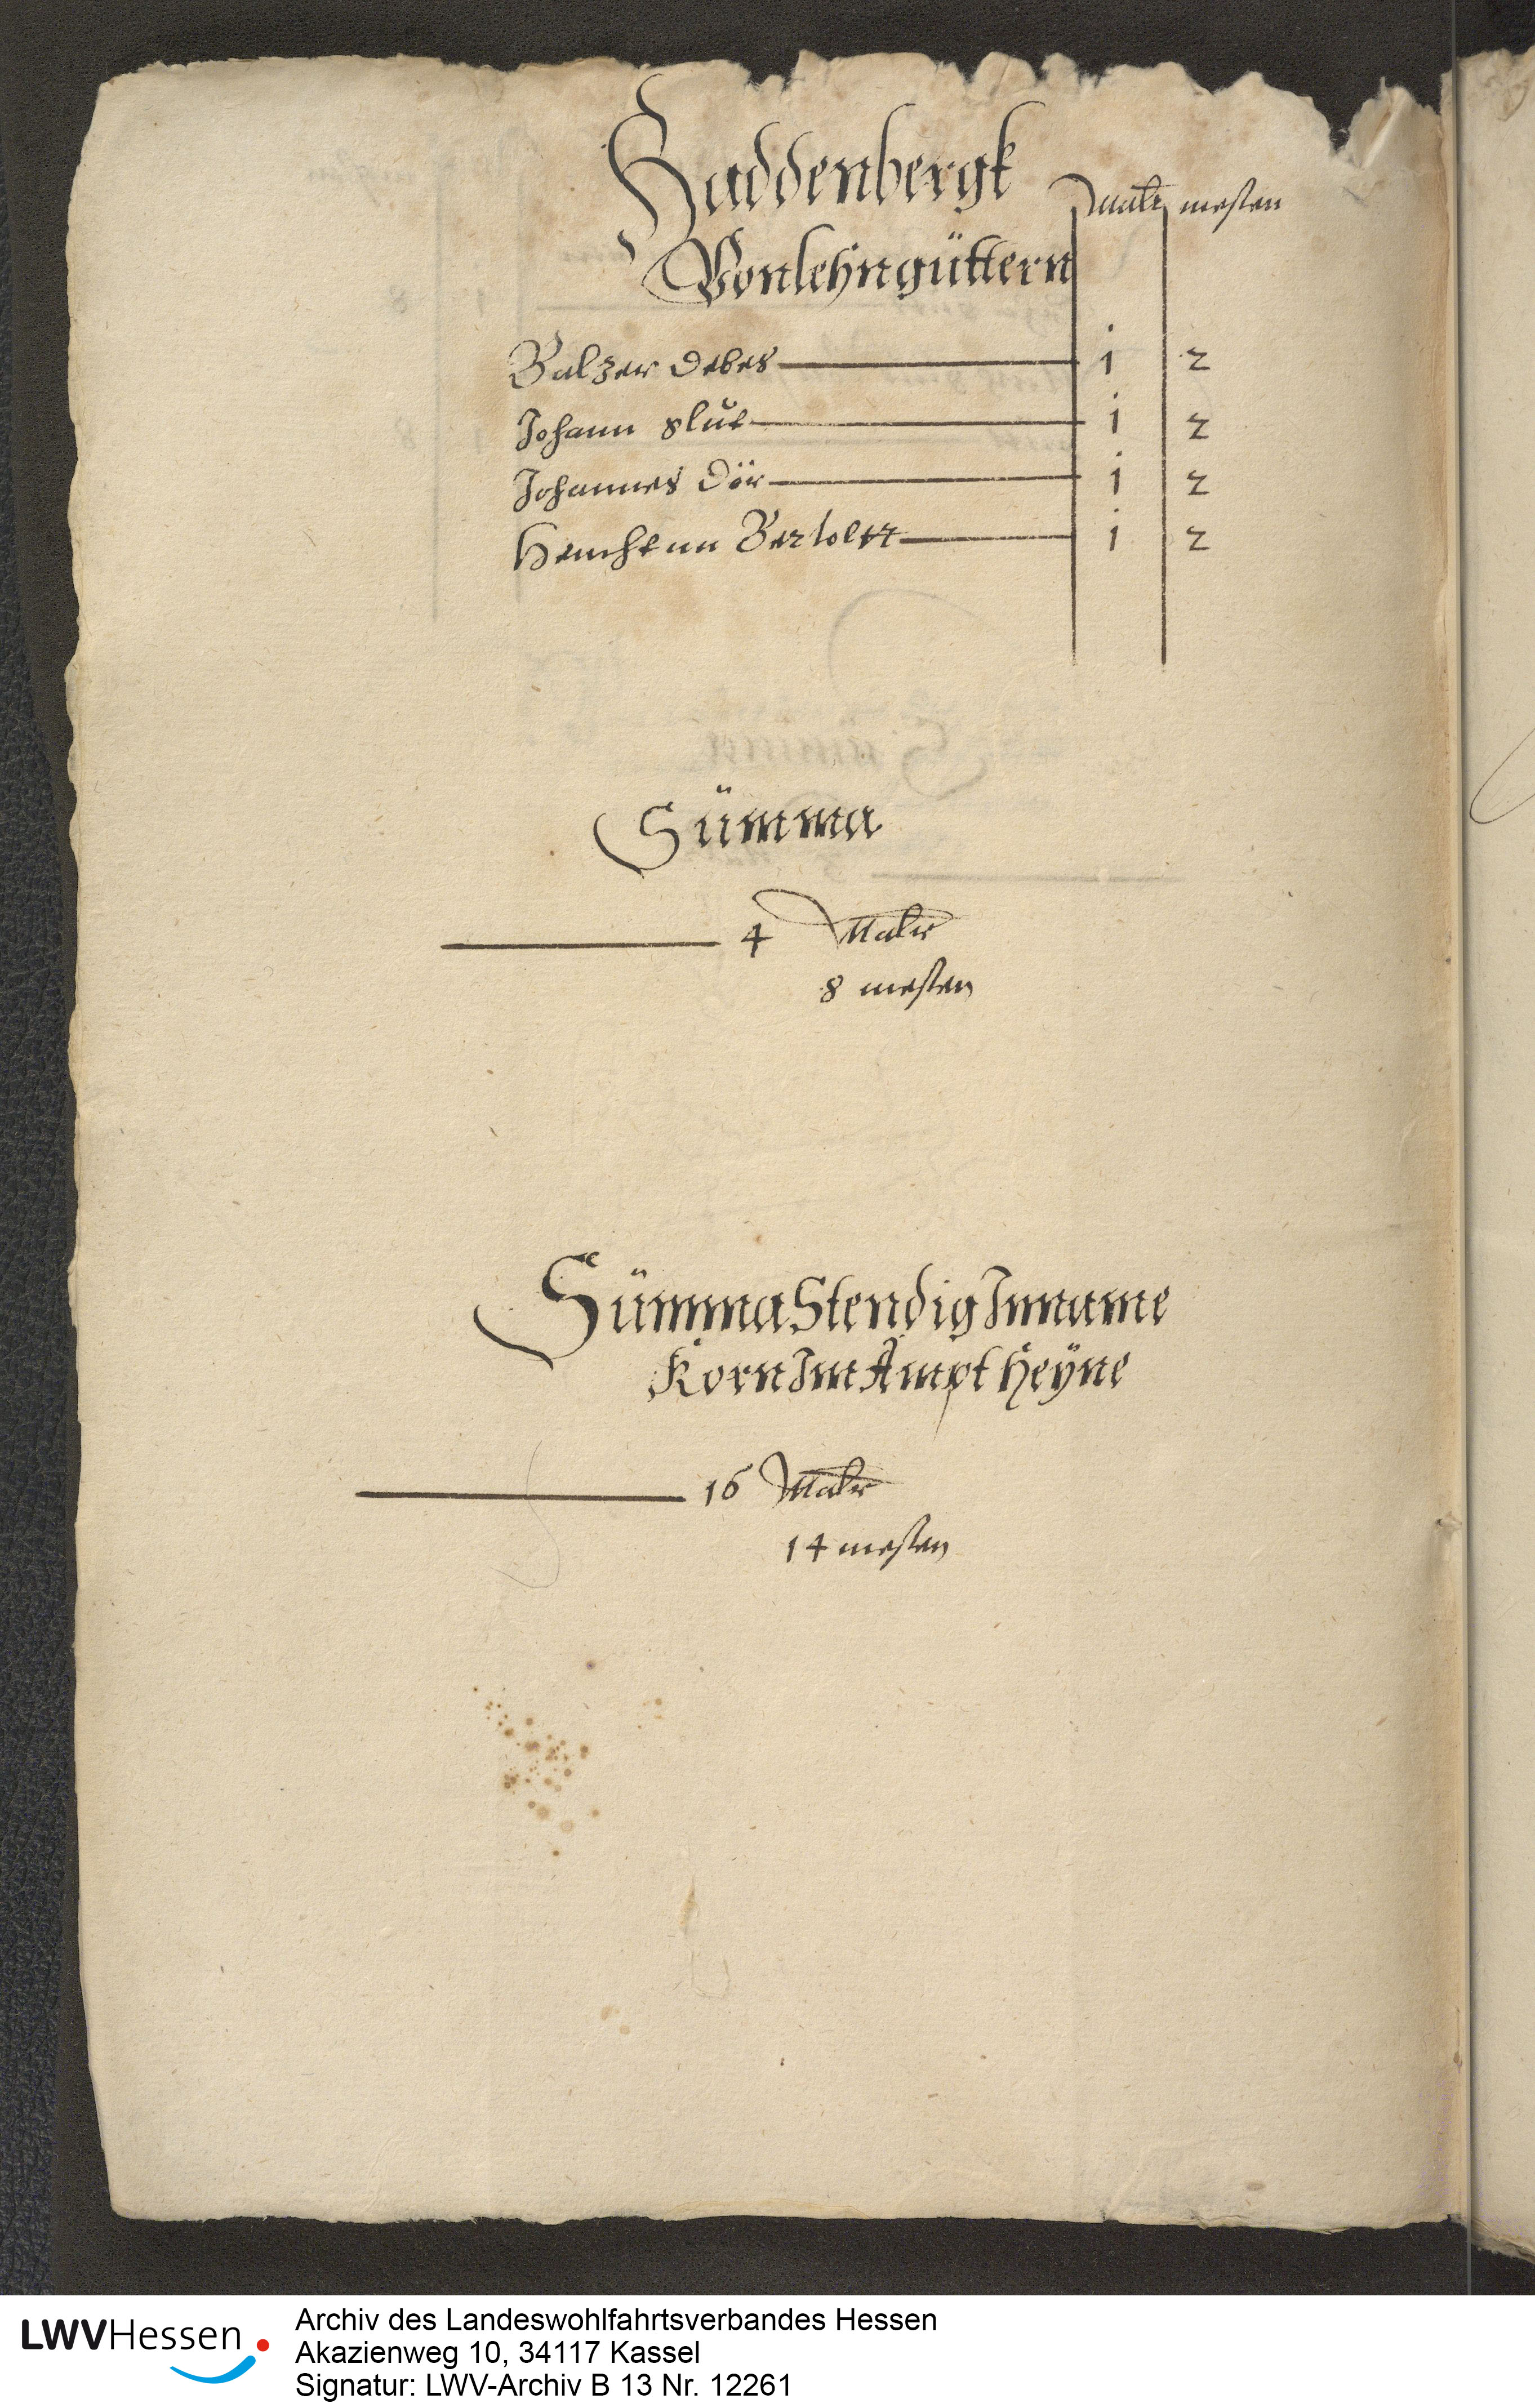 Haddenbergk
Malr mesten
Von lehngüttern
Balzer Debes 1 2
Johann 1 2
Johannes Dör 1 2
Henchenn Bertoltt 1 2
Summa
4 Malr
8 mesten
Summa Stendig Inname
Korn Im Ampt Heyne
16 Malr
14 mesten
LWVHessen
Archiv des Landeswohlfahrtsverbandes Hessen
Akazienweg 10, 34117 Kassel
Signatur: LWV-Archiv B 13 Nr. 12261